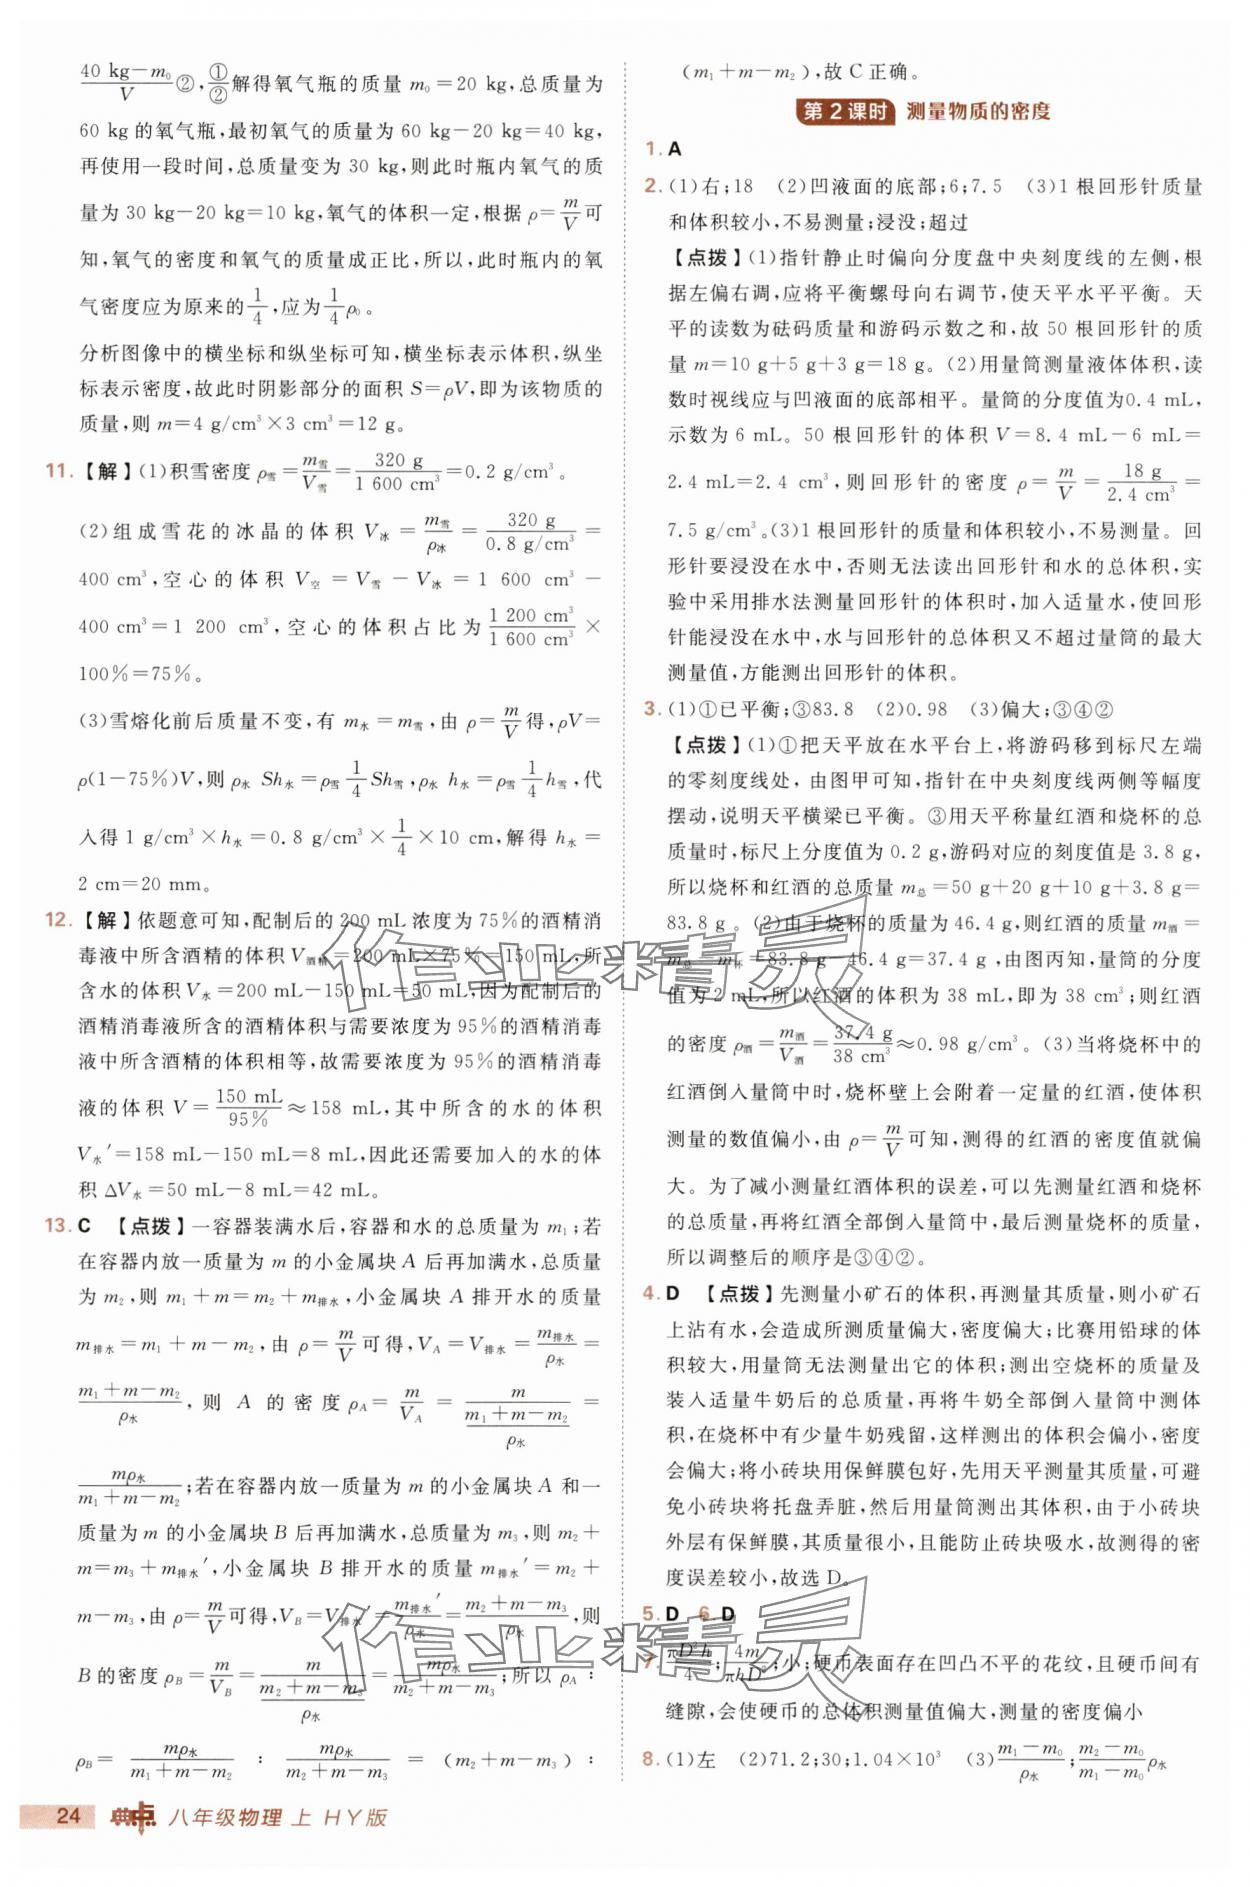 40 kg−m₀/V ②,①/②解得氧气瓶的质量 m₀=20 kg,总质量为
60 kg 的氧气瓶,最初氧气的质量为 60 kg−20 kg=40 kg,
再使用一段时间,总质量变为 30 kg,则此时瓶内氧气的质
量为 30 kg−20 kg=10 kg,氧气的体积一定,根据 ρ=m/V可
知,氧气的密度和氧气的质量成正比,所以,此时瓶内的氧
气密度应为原来的1/4,应为1/4ρ₀。
分析图像中的横坐标和纵坐标可知,横坐标表示体积,纵坐
标表示密度,故此时阴影部分的面积 S=ρV,即为该物质的
质量,则 m=4 g/cm³×3 cm³=12 g。
11.【解】(1)积雪密度 ρ雪=m雪/V雪=320 g/1 600 cm³=0.2 g/cm³。
(2)组成雪花的冰晶的体积 V冰=m雪/ρ冰=320 g/0.8 g/cm³=
400 cm³,空心的体积 V空=V雪−V冰=1 600 cm³−
400 cm³=1 200 cm³,空心的体积占比为1 200 cm³/1 600 cm³×
100%=75%。
(3)雪熔化前后质量不变,有 m水=m雪,由 ρ=m/V得,ρV=
ρ(1−75%)V,则 ρ水 Sh水=ρ雪 1/4 Sh雪,ρ水 h水=ρ雪 1/4 h雪,代
入得 1 g/cm³×h水=0.8 g/cm³×1/4×10 cm,解得 h水=
2 cm=20 mm。
12.【解】依题意可知,配制后的 200 mL 浓度为 75%的酒精消
毒液中所含酒精的体积 V酒精=200 mL×75%=150 mL,所
含水的体积 V水=200 mL−150 mL=50 mL,因为配制后的
酒精消毒液所含的酒精体积与需要浓度为 95%的酒精消毒
液中所含酒精的体积相等,故需要浓度为 95%的酒精消毒
液的体积 V=150 mL/95%≈158 mL,其中所含的水的体积
V水′=158 mL−150 mL=8 mL,因此还需要加入的水的体
积 ΔV水=50 mL−8 mL=42 mL。
13. C 【点拨】一容器装满水后,容器和水的总质量为 m₁;若
在容器内放一质量为 m 的小金属块 A 后再加满水,总质量
为 m₂,则 m₁+m=m₂+m排水,小金属块 A 排开水的质量
m排水=m₁+m−m₂,由 ρ=m/V可得,V_A=V排水=m排水/ρ水=
(m₁+m−m₂)/ρ水,则 A 的密度 ρ_A=m/V_A=m/((m₁+m−m₂)/ρ水)=
mρ水/(m₁+m−m₂);若在容器内放一质量为 m 的小金属块 A 和一
质量为 m 的小金属块 B 后再加满水,总质量为 m₃,则 m₂+
m=m₃+m排水′,小金属块 B 排开水的质量 m排水′=m₂+
m−m₃,由 ρ=m/V可得,V_B=V排水′=m排水′/ρ水=(m₂+m−m₃)/ρ水,则
B 的密度 ρ_B=m/V_B=m/((m₂+m−m₃)/ρ水)=mρ水/(m₂+m−m₃);所以 ρ_A:
ρ_B=mρ水/(m₁+m−m₂):mρ水/(m₂+m−m₃)=(m₂+m−m₃):
24 典中点 八年级物理 上 HY版
(m₁+m−m₂),故 C 正确。
第2课时 测量物质的密度
1. A
2. (1)右;18 (2)凹液面的底部;6;7.5 (3)1 根回形针质量
和体积较小,不易测量;浸没;超过
【点拨】(1)指针静止时偏向分度盘中央刻度线的左侧,根
据左偏右调,应将平衡螺母向右调节,使天平水平平衡。天
平的读数为砝码质量和游码示数之和,故 50 根回形针的质
量 m=10 g+5 g+3 g=18 g。(2)用量筒测量液体体积,读
数时视线应与凹液面的底部相平。量筒的分度值为0.4 mL,
示数为 6 mL。50 根回形针的体积 V=8.4 mL−6 mL=
2.4 mL=2.4 cm³,则回形针的密度 ρ=m/V=18 g/2.4 cm³=
7.5 g/cm³。(3)1根回形针的质量和体积较小,不易测量。回
形针要浸没在水中,否则无法读出回形针和水的总体积,实
验中采用排水法测量回形针的体积时,加入适量水,使回形
针能浸没在水中,水与回形针的总体积又不超过量筒的最大
测量值,方能测出回形针的体积。
3. (1)①已平衡;③83.8 (2)0.98 (3)偏大;③④②
【点拨】(1)①把天平放在水平台上,将游码移到标尺左端
的零刻度线处，由图甲可知,指针在中央刻度线两侧等幅度
摆动,说明天平横梁已平衡。③用天平称量红酒和烧杯的总
质量时,标尺上分度值为 0.2 g,游码对应的刻度值是 3.8 g,
所以烧杯和红酒的总质量 m总=50 g+20 g+10 g+3.8 g=
83.8 g。(2)由于烧杯的质量为46.4 g,则红酒的质量 m酒=
m总−m杯=83.8 g−46.4 g=37.4 g,由图丙知,量筒的分度
值为 2 mL,所以红酒的体积为 38 mL,即为 38 cm³;则红酒
的密度 ρ酒=m酒/V酒=37.4 g/38 cm³≈0.98 g/cm³。(3)当将烧杯中的
红酒倒入量筒中时,烧杯壁上会附着一定量的红酒,使体积
测量的数值偏小,由 ρ=m/V可知,测得的红酒的密度值就偏
大。为了减小测量红酒体积的误差,可以先测量红酒和烧杯
的总质量,再将红酒全部倒入量筒中,最后测量烧杯的质量,
所以调整后的顺序是③④②。
4. D 【点拨】先测量小矿石的体积,再测量其质量,则小矿石
上沾有水,会造成所测质量偏大,密度偏大;比赛用铅球的体
积较大,用量筒无法测量出它的体积;测出空烧杯的质量及
装入适量牛奶后的总质量,再将牛奶全部倒入量筒中测体
积,在烧杯中有少量牛奶残留,这样测出的体积会偏小,密度
会偏大;将小砖块用保鲜膜包好,先用天平测量其质量,可避
免小砖块将托盘弄脏,然后用量筒测出其体积,由于小砖块
外层有保鲜膜,其质量很小,且能防止砖块吸水,故测得的密
度误差较小,故选 D。
5. D 6. D
7. πD²h/4;4m/πhD²;小;硬币表面存在凹凸不平的花纹,且硬币间有
缝隙,会使硬币的总体积测量值偏大,测量的密度偏小
8. (1)左 (2)71.2;30;1.04×10³ (3)(m₁−m₀)/ρ水;(m₂−m₀)/(m₁−m₀)ρ水
作业精灵
作业精灵